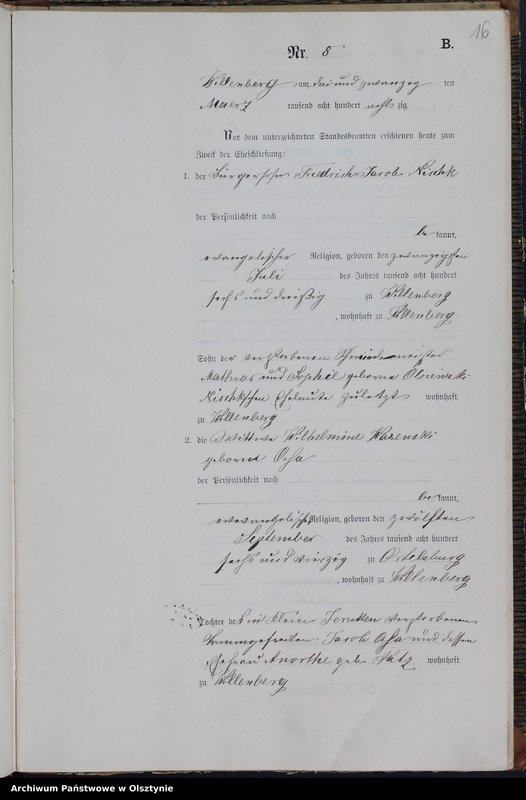 16
Nr. 8
B.
Willenberg am drei und zwanzig ten
Maerz tausend acht hundert acht zig.
Vor dem unterzeichneten Standesbeamten erschienen heute zum
Zweck der Eheschließung:
1. der Bürgersohn Friedrich Jacob Nischk
der Persönlichkeit nach
be kannt,
evangelischer Religion, geboren den zwanzigsten
Juli des Jahres tausend acht hundert
sechs und dreißig zu Willenberg
, wohnhaft zu Willenberg
Sohn der verstorbenen
Mathias und Sophie geborene
Nischk'schen Eheleute zuletzt wohnhaft
zu Willenberg
2. die Wittwe Wilhelmine
geborene
der Persönlichkeit nach
be kannt,
evangelischer Religion, geboren den zwölften
September des Jahres tausend acht hundert
sechs und vierzig zu Ortelsburg
, wohnhaft zu Willenberg
Tochter des verstorbenen
Jacob und dessen
Ehefrau geb. wohnhaft
zu Willenberg
Archiwum Państwowe w Olsztynie